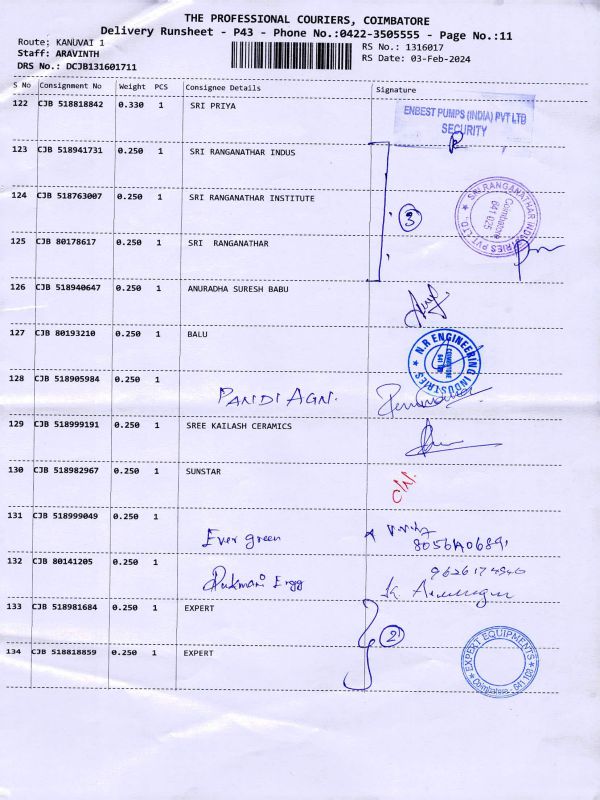 THE PROFESSIONAL COURIERS, COIMBATORE
Delivery Runsheet - P43 - Phone No.:0422-3505555 - Page No.:11
Route: KANUVAI 1
RS No.: 1316017
Staff: ARAVINTH
RS Date: 03-Feb-2024
DRS No.: DCJB131601711
S No Consignment No Weight PCS Consignee Details Signature
122 CJB 518818842 0.330 1 SRI PRIYA
ENBEST PUMPS (INDIA) PVT LTD
SECURITY
123 CJB 518941731 0.250 1 SRI RANGANATHAR INDUS
124 CJB 518763007 0.250 1 SRI RANGANATHAR INSTITUTE
3
SRI RANGANATHAR INDUSTRIES PVT LTD.
Coimbatore
641 025
125 CJB 80178617 0.250 1 SRI RANGANATHAR
126 CJB 518940647 0.250 1 ANURADHA SURESH BABU
127 CJB 80193210 0.250 1 BALU
N.R ENGINEERING INDUSTRIES
128 CJB 518905984 0.250 1 PANDI AGN.
129 CJB 518999191 0.250 1 SREE KAILASH CERAMICS
130 CJB 518982967 0.250 1 SUNSTAR
131 CJB 518999049 0.250 1 Ever green
132 CJB 80141205 0.250 1 Rukmani Engg
133 CJB 518981684 0.250 1 EXPERT
2
EXPERT EQUIPMENTS
Coimbatore - 641 103
134 CJB 518818859 0.250 1 EXPERT